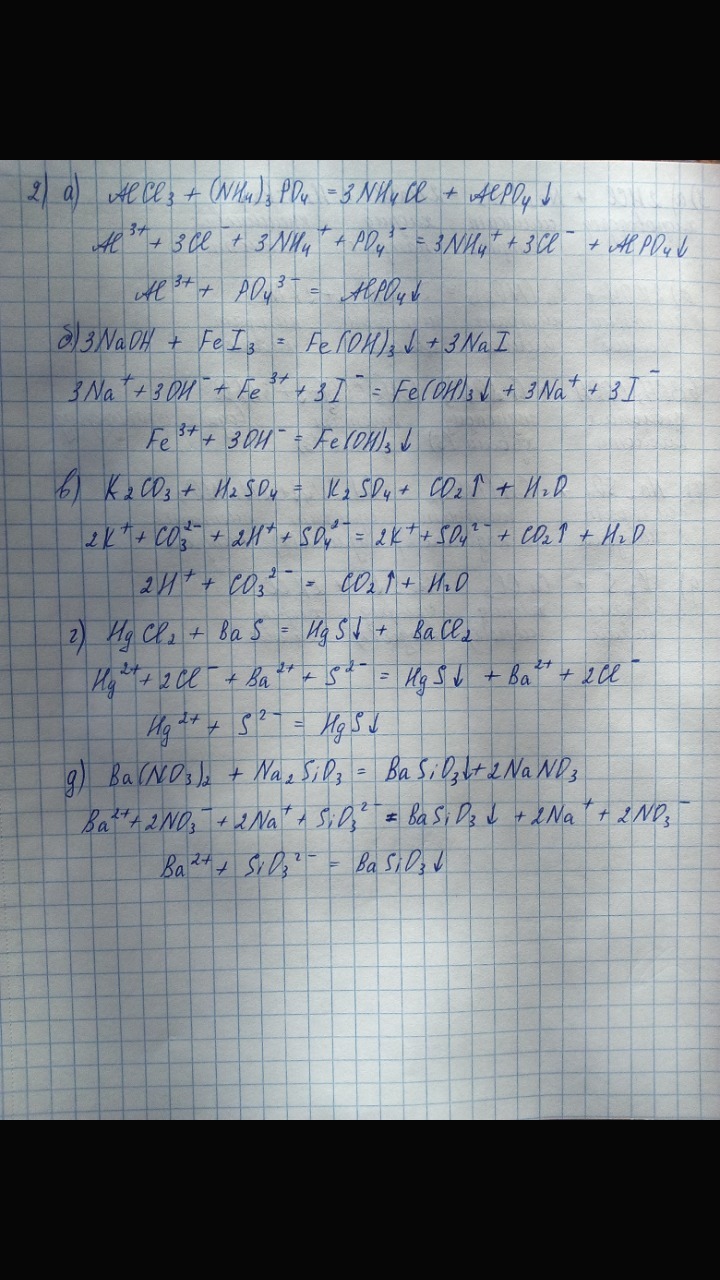 2) а) AlCl₃ + (NH₄)₃PO₄ = 3NH₄Cl + AlPO₄↓
Al³⁺ + 3Cl⁻ + 3NH₄⁺ + PO₄³⁻ = 3NH₄⁺ + 3Cl⁻ + AlPO₄↓
Al³⁺ + PO₄³⁻ = AlPO₄↓
б) 3NaOH + FeI₃ = Fe(OH)₃↓ + 3NaI
3Na⁺ + 3OH⁻ + Fe³⁺ + 3I⁻ = Fe(OH)₃↓ + 3Na⁺ + 3I⁻
Fe³⁺ + 3OH⁻ = Fe(OH)₃↓
в) K₂CO₃ + H₂SO₄ = K₂SO₄ + CO₂↑ + H₂O
2K⁺ + CO₃²⁻ + 2H⁺ + SO₄²⁻ = 2K⁺ + SO₄²⁻ + CO₂↑ + H₂O
2H⁺ + CO₃²⁻ = CO₂↑ + H₂O
г) HgCl₂ + BaS = HgS↓ + BaCl₂
Hg²⁺ + 2Cl⁻ + Ba²⁺ + S²⁻ = HgS↓ + Ba²⁺ + 2Cl⁻
Hg²⁺ + S²⁻ = HgS↓
д) Ba(NO₃)₂ + Na₂SiO₃ = BaSiO₃↓ + 2NaNO₃
Ba²⁺ + 2NO₃⁻ + 2Na⁺ + SiO₃²⁻ = BaSiO₃↓ + 2Na⁺ + 2NO₃⁻
Ba²⁺ + SiO₃²⁻ = BaSiO₃↓